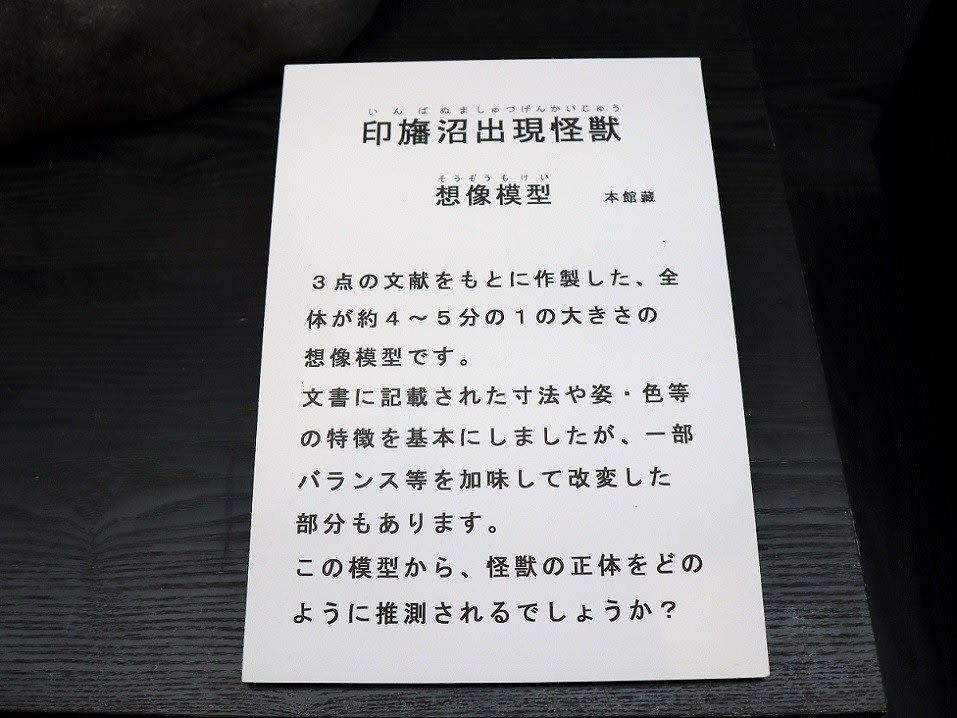 いんばぬましゅつげんかいじゅう
印旛沼出現怪獣
そうぞうもけい
想像模型 本館蔵
３点の文献をもとに作製した、全
体が約４～５分の１の大きさの
想像模型です。
文書に記載された寸法や姿・色等
の特徴を基本にしましたが、一部
バランス等を加味して改変した
部分もあります。
この模型から、怪獣の正体をどの
ように推測されるでしょうか？